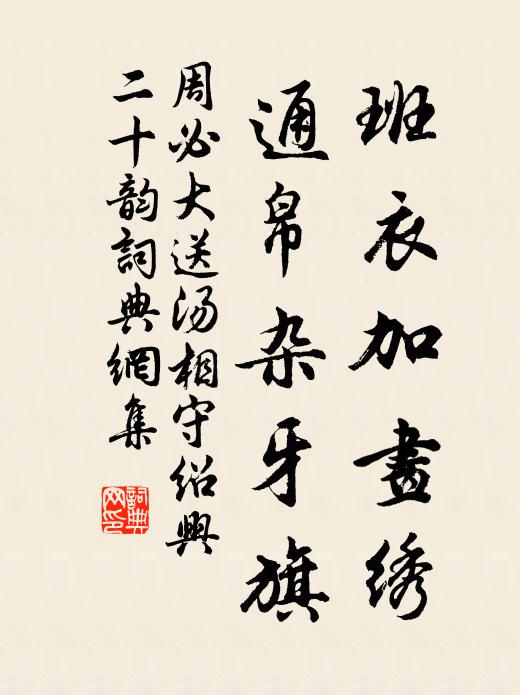 班衣加畫绣
通帛杂牙旗
周必大送汤相守绍興
二十韵詞典網集
詞典网印